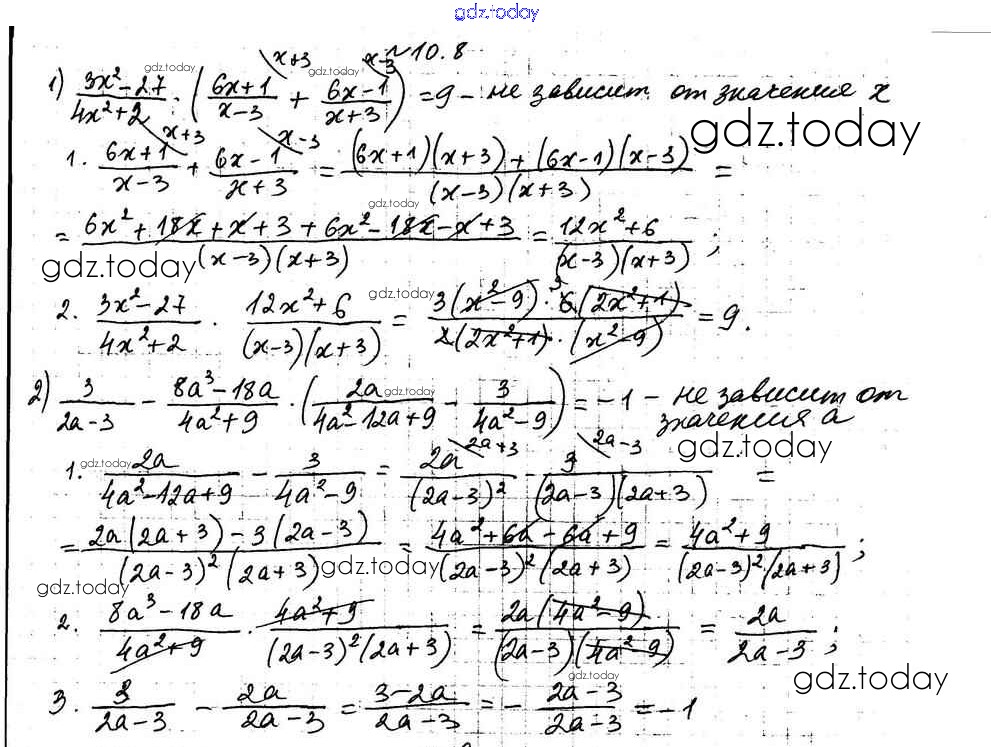 gdz.today
№10.8
1) (3x²-27)/(4x²+2) · ((6x+1)/(x-3) + (6x-1)/(x+3)) = 9 - не зависит от значения x
x+3 x-3
gdz.today gdz.today gdz.today
x+3 x-3
1. (6x+1)/(x-3) + (6x-1)/(x+3) = ((6x+1)(x+3)+(6x-1)(x-3))/((x-3)(x+3)) =
gdz.today
= (6x²+18x+x+3+6x²-18x-x+3)/((x-3)(x+3)) = (12x²+6)/((x-3)(x+3));
gdz.today
2. (3x²-27)/(4x²+2) · (12x²+6)/((x-3)(x+3)) = (3(x²-9)·6(2x²+1))/(2(2x²+1)·(x²-9)) = 9.
3
gdz.today
2) 3/(2a-3) - (8a³-18a)/(4a²+9) · (2a/(4a²-12a+9) - 3/(4a²-9)) = -1 - не зависит от
значения a
gdz.today gdz.today
2a+3 2a-3
1. 2a/(4a²-12a+9) - 3/(4a²-9) = 2a/(2a-3)² - 3/((2a-3)(2a+3)) =
gdz.today
= (2a(2a+3)-3(2a-3))/((2a-3)²(2a+3)) = (4a²+6a-6a+9)/((2a-3)²(2a+3)) = (4a²+9)/((2a-3)²(2a+3));
gdz.today gdz.today
2. (8a³-18a)/(4a²+9) · (4a²+9)/((2a-3)²(2a+3)) = (2a(4a²-9))/((2a-3)(4a²-9)) = 2a/(2a-3);
gdz.today gdz.today
3. 3/(2a-3) - 2a/(2a-3) = (3-2a)/(2a-3) = - (2a-3)/(2a-3) = -1